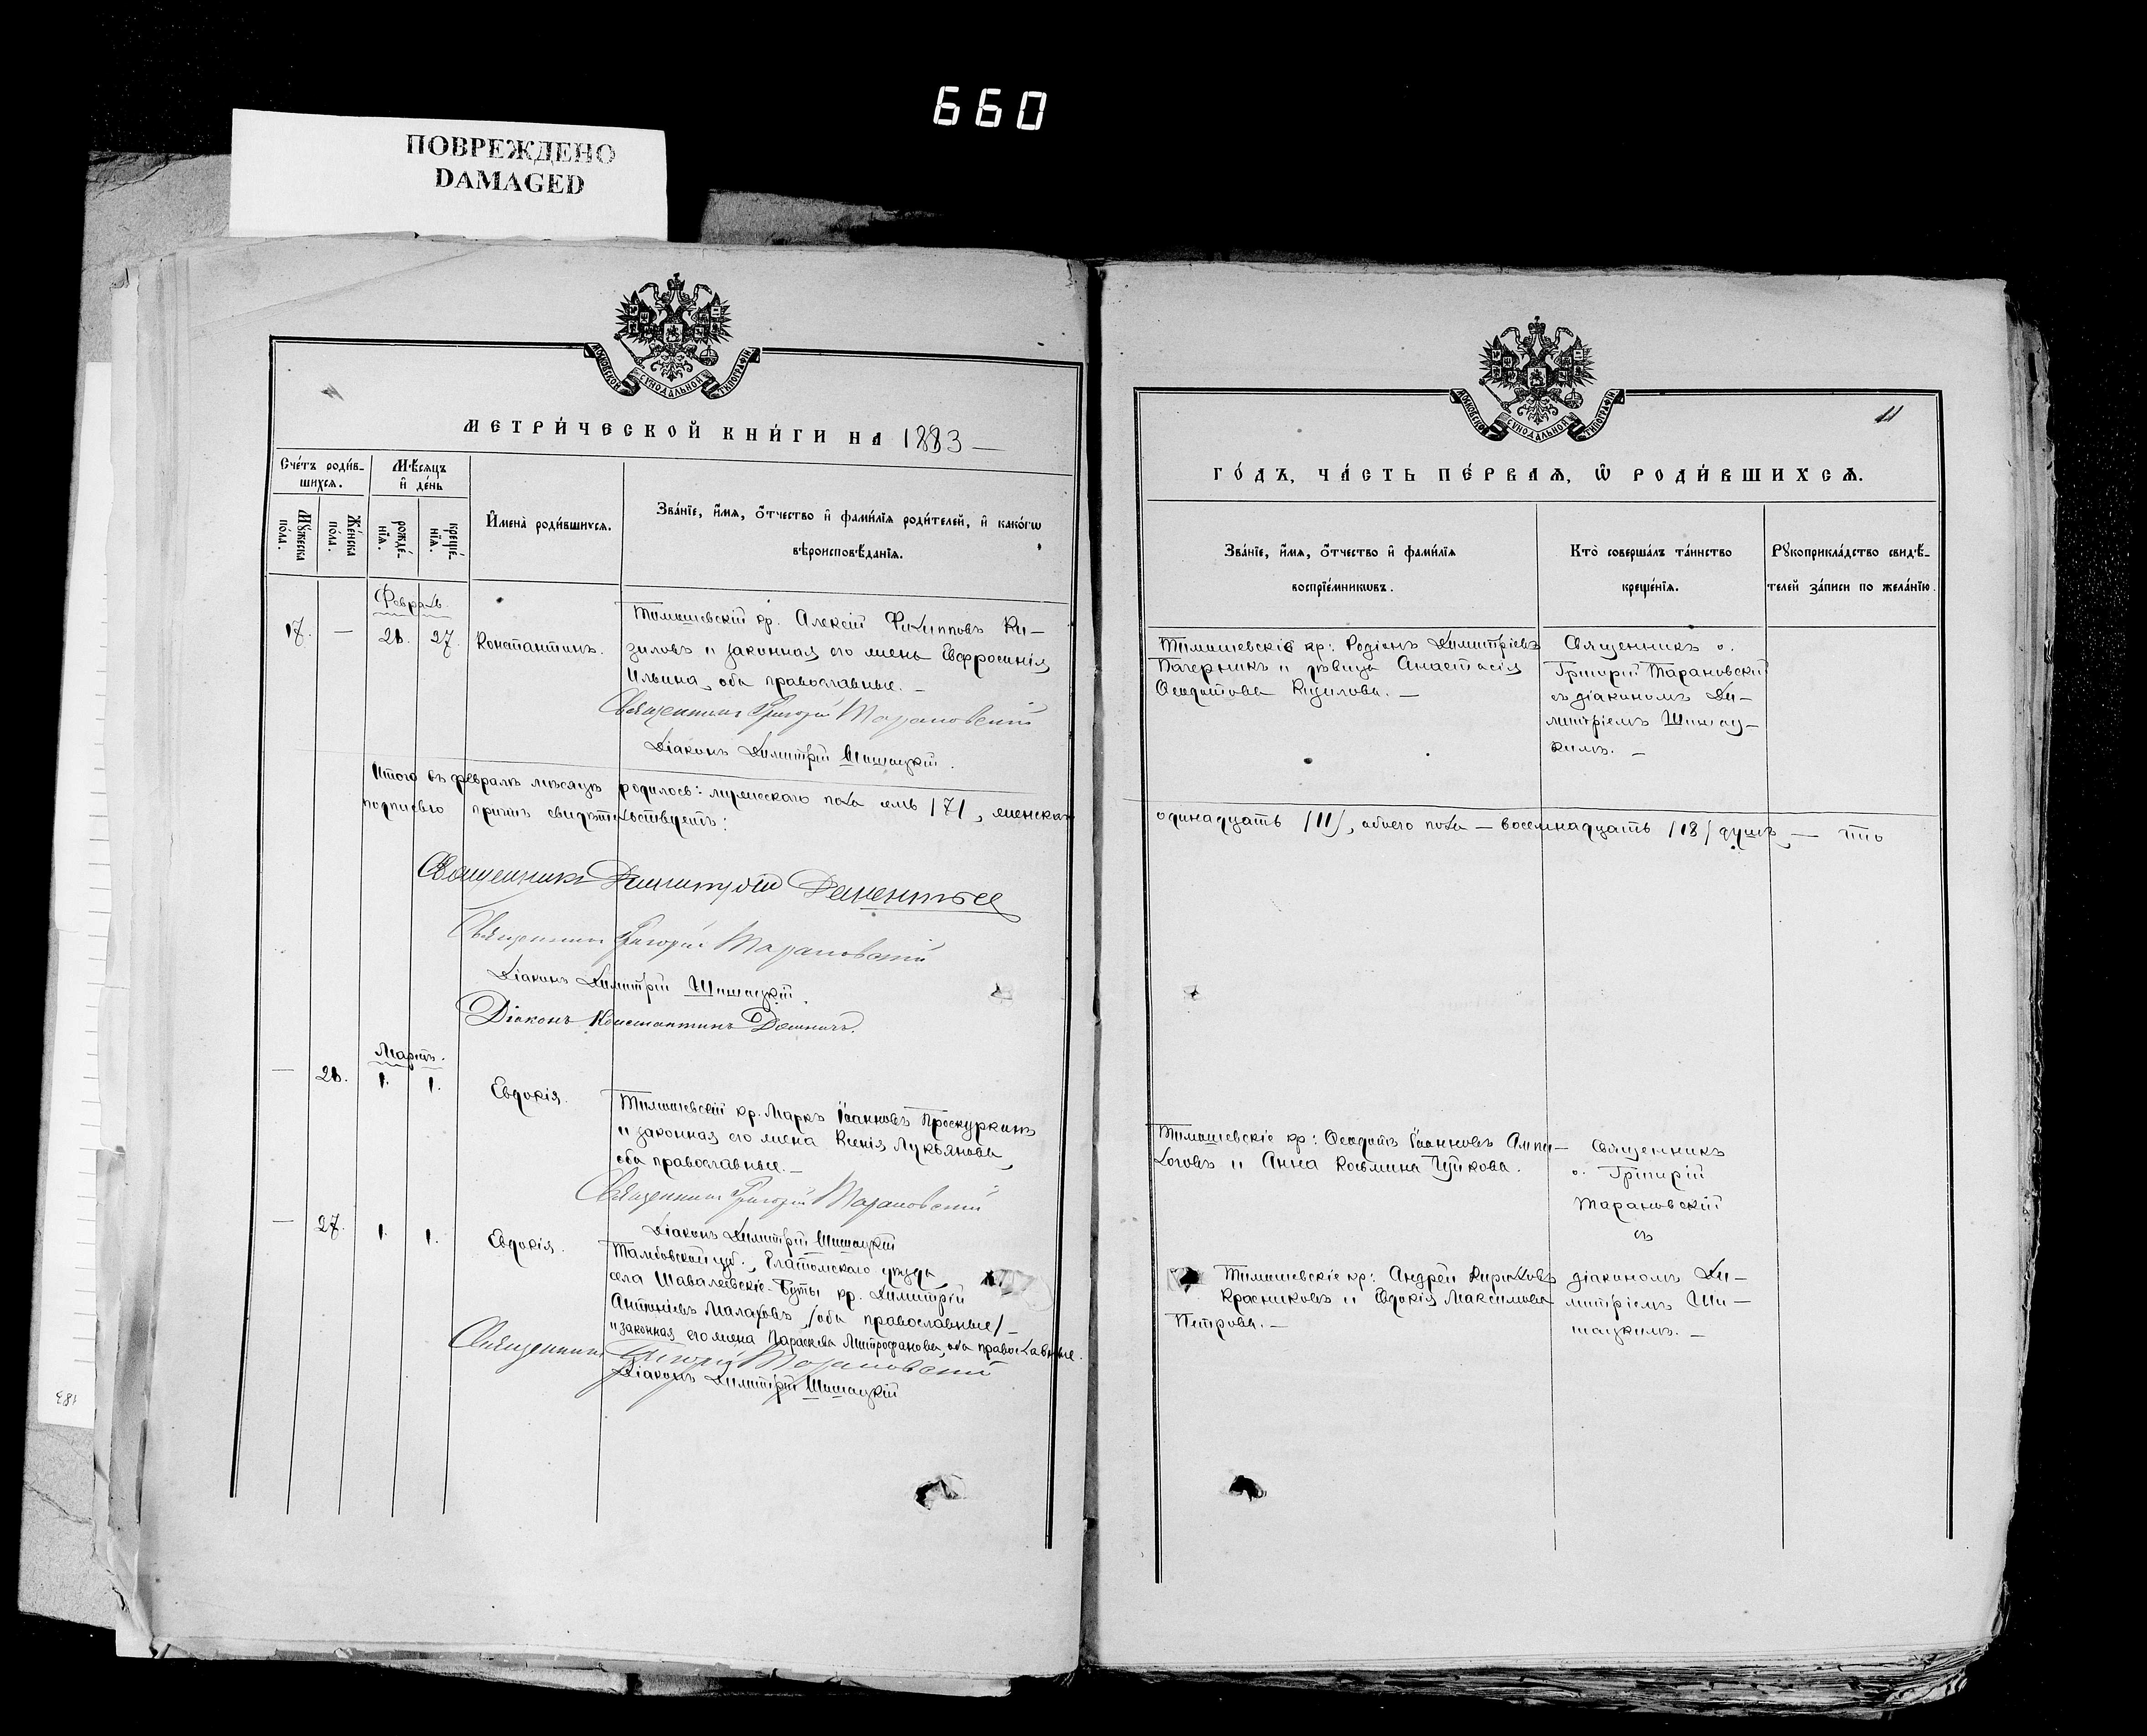 660
ПОВРЕЖДЕНО
DAMAGED
МОСКОВСКОЙ СѴНОДАЛЬНОЙ ТИПОГРАФІИ
МЕТРИ́ЧЕСКОЙ КНИ́ГИ НА 1883 —
Сче́тъ роди́в-
шихсѧ.
Мѣ́сѧцъ
и҆ де́нь
Мꙋ́жеска
по́ла.
Же́нска
по́ла.
рожде́-
нїѧ.
креще́-
нїѧ.
И҆мена̀ роди́вшихсѧ.
Зва́нїе, и҆́мѧ, ѻ҆́тчество и҆ фами́лїѧ роди́телей, и҆ како́гѡ
вѣроисповѣ́данїѧ.
Февраль.
17. — 26. 27. Константинъ.
Тимашевскій кр. Алексій Филипповъ Ки-
зиловъ и законная его жена Евфросинія
Ильина, оба православные. —
Священникъ Григорій Тарановскій
Діаконъ Димитрій Шишацкій.
Итого въ февралѣ мѣсяцѣ родилось: мужескаго пола семь /7/, женскаго
подписью причтъ свидѣтельствуетъ:
Священникъ Димитрій
Священникъ Григорій Тарановскій
Діаконъ Димитрій Шишацкій.
Діаконъ Константинъ
Мартъ.
— 26. 1. 1. Евдокія.
Тимашевскій кр. Маркъ Іоанновъ Проскуркинъ
и законная его жена Ксенія Лукьянова,
оба православные. —
Священникъ Григорій Тарановскій
Діаконъ Димитрій Шишацкій
— 27. 1. 1. Евдокія.
Тамбовской губ., Елатомскаго уѣзда,
села Шавалеевскіе-Буты кр. Димитрій
Антоніевъ Малаховъ /оба православные/ —
и законная его жена Параскева Митрофанова, оба православные.
Священникъ Григорій Тарановскій
Діаконъ Димитрій Шишацкій
МОСКОВСКОЙ СѴНОДАЛЬНОЙ ТИПОГРАФІИ
11
ГО́ДЪ, ЧА́СТЬ ПЕ́РВАѦ, Ѡ҆ РОДИ́ВШИХСѦ.
Зва́нїе, и҆́мѧ, ѻ҆́тчество и҆ фами́лїѧ
воспрїе́мникѡвъ.
Кто̀ соверша́лъ та́инство
креще́нїѧ.
Рꙋкоприкла́дство свидѣ́-
телей за́писи по жела́нїю.
Тимашевскіе кр: Родіонъ Димитріевъ
Пагерникъ и дѣвица Анастасія
Ѳеодотова Кизилова. —
Священникъ о.
Григорій Тарановскій
съ діакономъ Ди-
митріемъ Шишац-
кимъ. —
одинадцать /11/, обоего пола — восемнадцать /18/ душъ, — что
Тимашевскіе кр: Ѳеодотъ Іоанновъ Ампи-
логовъ и Анна Козьмина Чуйкова.
Священникъ
о. Григорій
Тарановскій
съ
Тимашевскіе кр: Андрей Кириловъ
Красниковъ и Евдокія Максимова
Петрова. —
діакономъ Ди-
митріемъ Ши-
шацкимъ. —
183